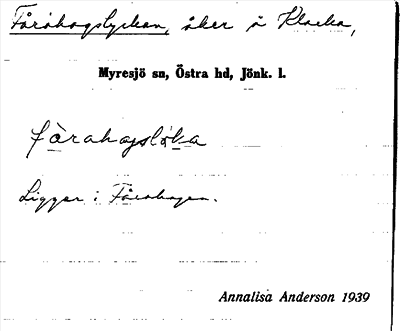 Fårahagslyckan, åker å Klacka,
Myresjö sn, Östra hd, Jönk. l.
fàrahagslö́ka
Ligger i Fårahagen.
Annalisa Anderson 1939